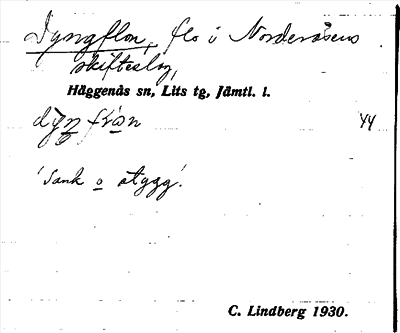 Dyngflon, flo i Norderåsens
skifteslag,
Häggenås sn, Lits tg, Jämtl. l.
44
'sank o stygg'.
C. Lindberg 1930.